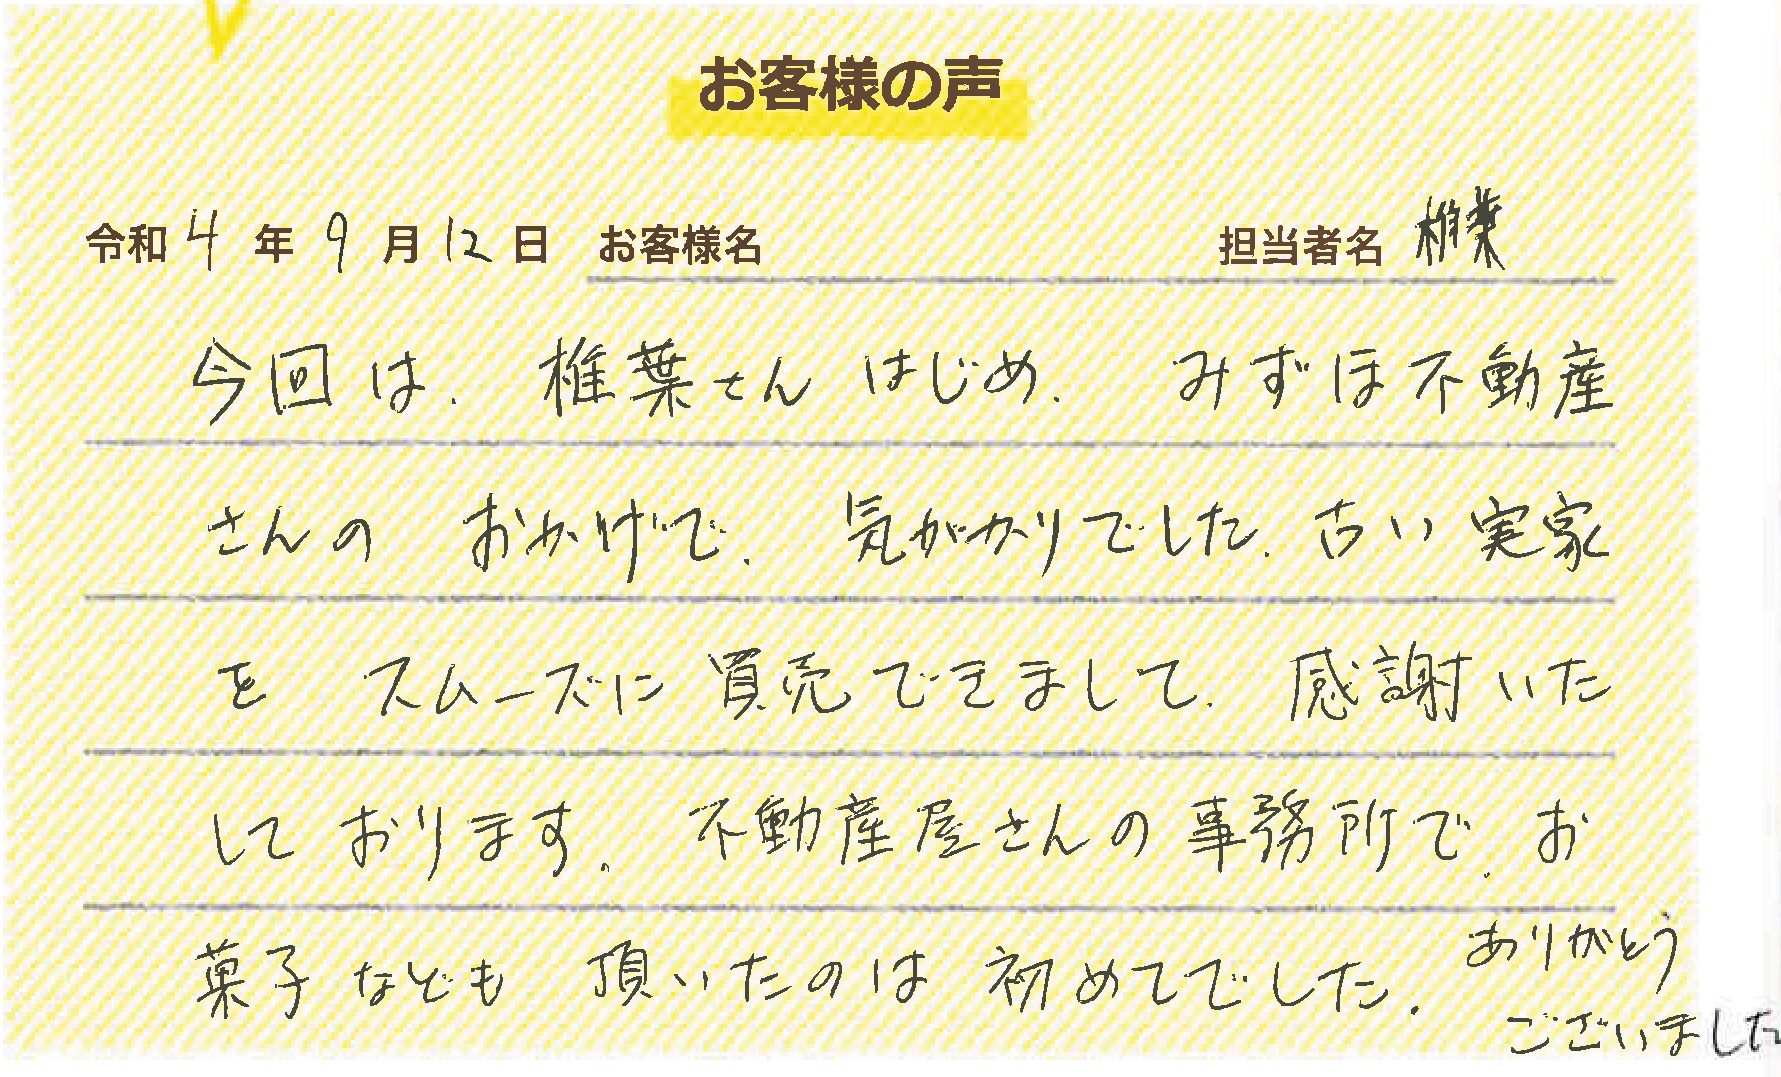 お客様の声
令和4年9月12日 お客様名 担当者名 椎葉
今回は、椎葉さんはじめ、みずほ不動産
さんの おかげで、気がかりでした、古い実家
を スムーズに買売できまして、感謝いた
しております。不動産屋さんの事務所で、お
菓子なども 頂いたのは 初めてでした。
ありがとう
ございました